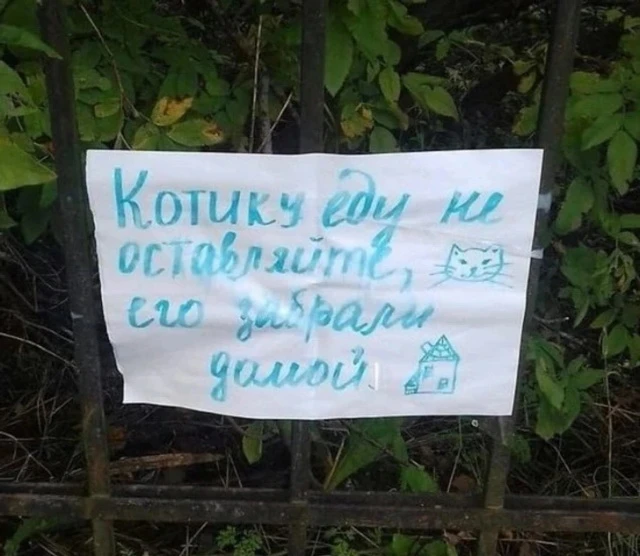 Котику еду не
оставляйте,
его забрали
домой